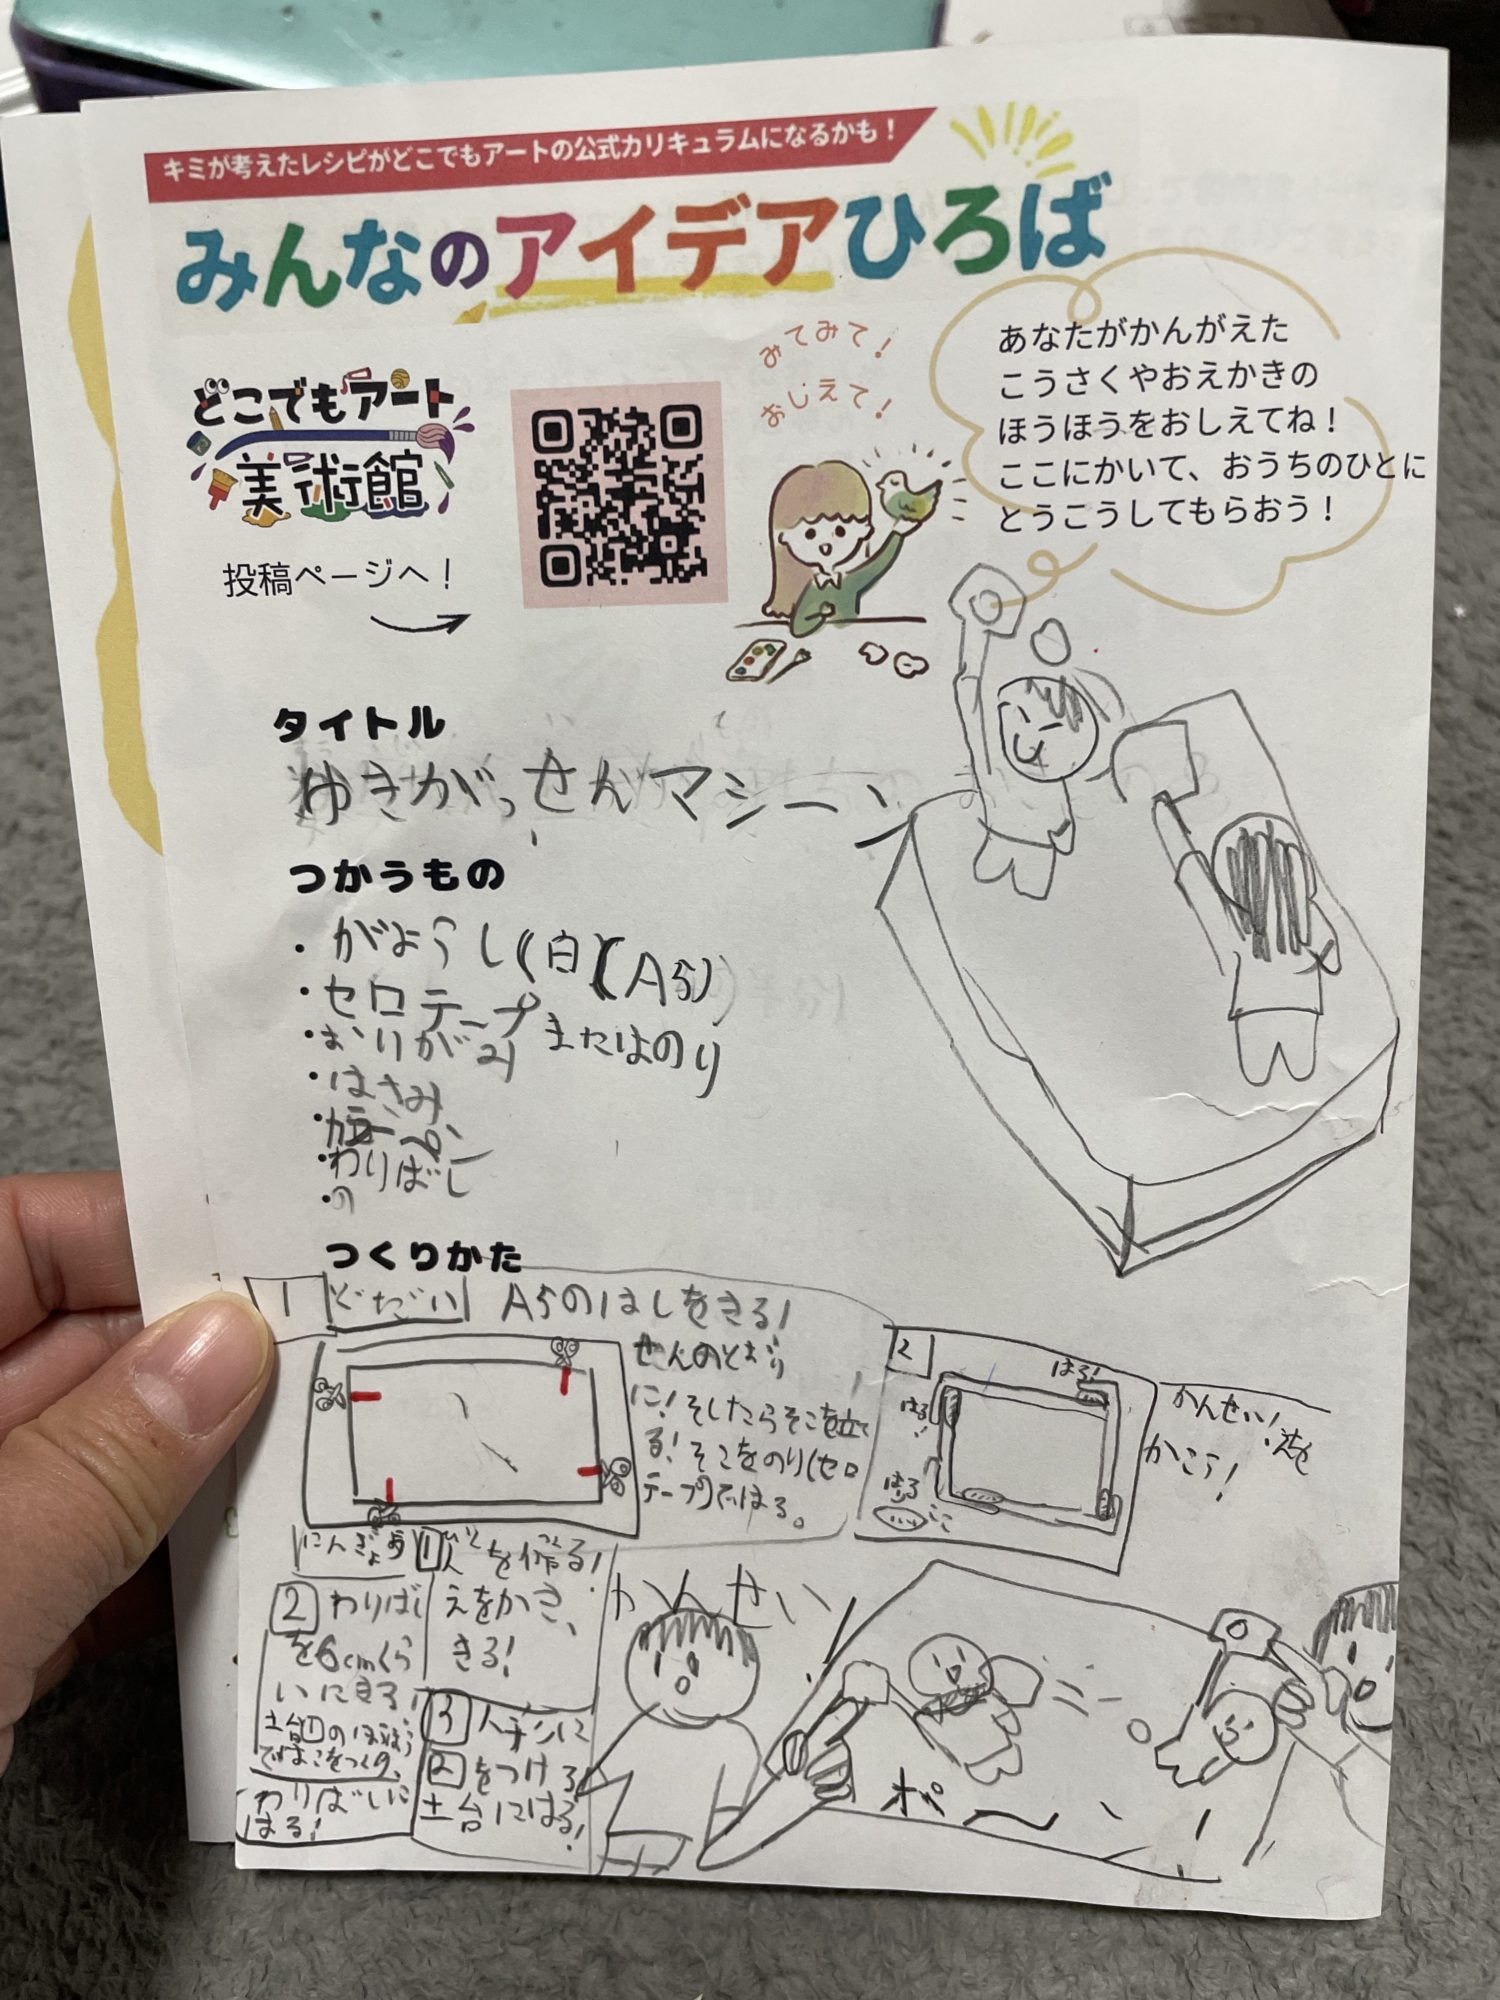 キミが考えたレシピがどこでもアートの公式カリキュラムになるかも！
みんなのアイデアひろば
みてみて！
おしえて！
あなたがかんがえた
こうさくやおえかきの
ほうほうをおしえてね！
ここにかいて、おうちのひとに
とうこうしてもらおう！
どこでもアート
美術館
投稿ページへ！
タイトル
ゆきがっせんマシーン
つかうもの
・がようし(白)(A5)
・セロテープまたはのり
・おりがみ
・はさみ
・わりばし
つくりかた
1 どだい A5のはしをきる!
せんのとおり
に!そしたらそこを立て
る!そこをのり(セロ
テープ)ではる。
2
はる!
はる!
はる
かんせい!えを
かこう!
にんぎょう
1 人を作る!
えをかき、
きる!
2 わりばし
を6cmくら
いに
土台1のほうほう
ではこをつくり、
わりばしに
はる!
3 ニンギョウに
2をつける
土台にはる!
かんせい
ポーン!